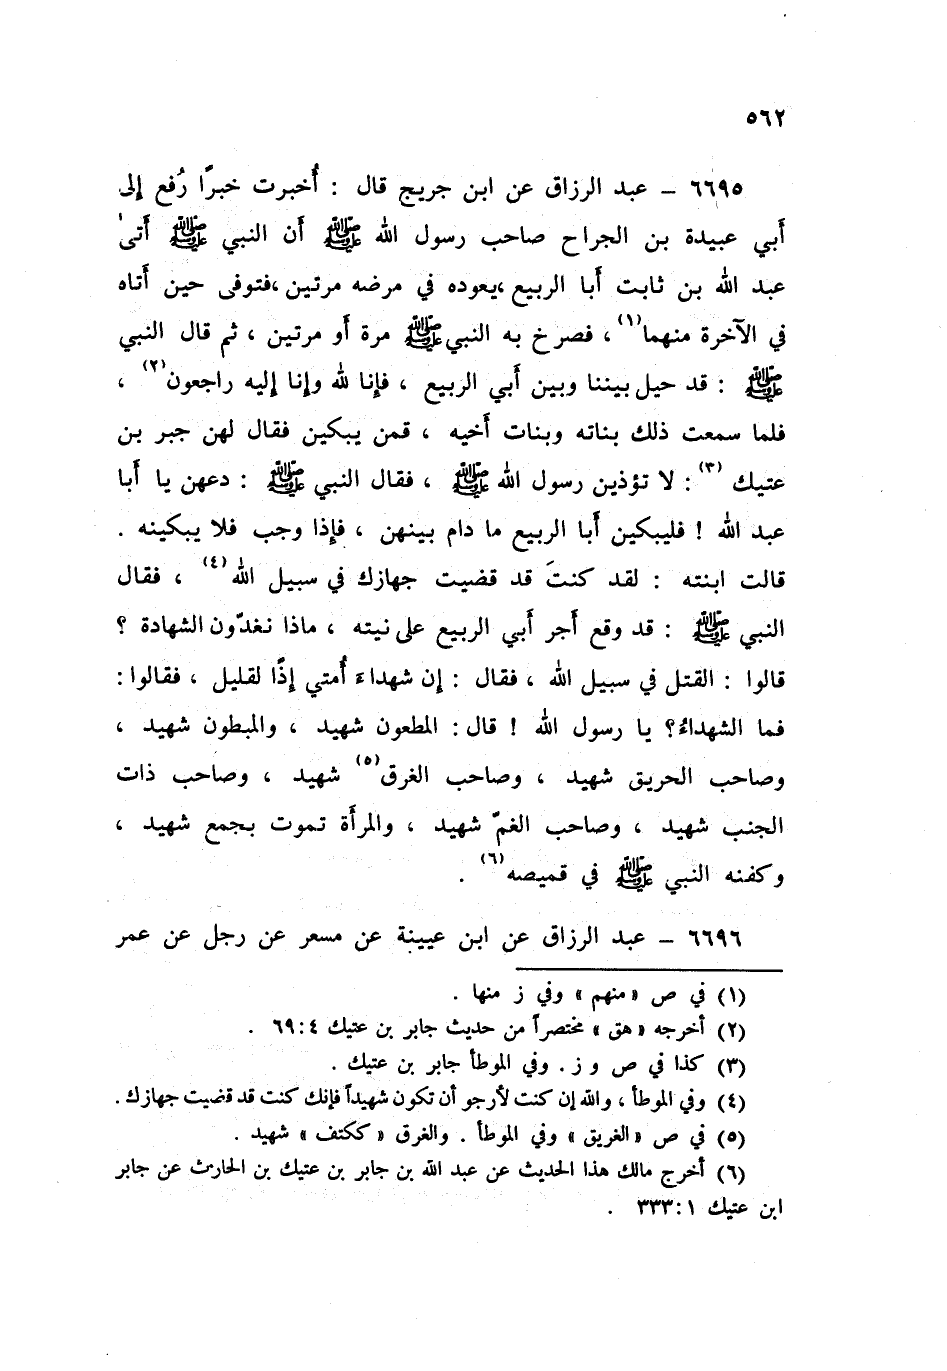 ٥٦٢
٦٦٩٥ – عبد الرزاق عن ابن جريج قال : أُخبرت خبرًا رُفع إلى
أبي عبيدة بن الجراح صاحب رسول الله ﷺ أن النبي ﷺ أتى
عبد الله بن ثابت أبا الربيع ،يعوده في مرضه مرتين ،فتوفى حين أتاه
في الآخرة منهما(١) ، فصرخ به النبي ﷺ مرة أو مرتين ، ثم قال النبي
ﷺ : قد حيل بيننا وبين أبي الربيع ، فإنا لله وإنا إليه راجعون(٢) ،
فلما سمعت ذلك بناته وبنات أخيه ، قمن يبكين فقال لهن جبر بن
عتيك (٣) : لا تؤذين رسول الله ﷺ ، فقال النبي ﷺ : دعهن يا أبا
عبد الله ! فليبكين أبا الربيع ما دام بينهن ، فإذا وجب فلا يبكينه .
قالت ابنته : لقد كنتَ قد قضيت جهازك في سبيل الله(٤) ، فقال
النبي ﷺ : قد وقع أجر أبي الربيع على نيته ، ماذا نعدّون الشهادة ؟
قالوا : القتل في سبيل الله ، فقال : إن شهداء أُمتي إذًا لقليل ، فقالوا :
فما الشهداءُ؟ يا رسول الله ! قال : المطعون شهيد ، والمبطون شهيد ،
وصاحب الحريق شهيد ، وصاحب الغرق(٥) شهيد ، وصاحب ذات
الجنب شهيد ، وصاحب الغمّ شهيد ، والمرأة تموت بجمع شهيد ،
وكفنه النبي ﷺ في قميصه(٦) .
٦٦٩٦ – عبد الرزاق عن ابن عيينة عن مسعر عن رجل عن عمر
(١) في ص «منهم» وفي ز منها .
(٢) أخرجه «هق» مختصراً من حديث جابر بن عتيك ٤ : ٦٩ .
(٣) كذا في ص و ز . وفي الموطأ جابر بن عتيك .
(٤) وفي الموطأ ، والله إن كنت لأرجو أن تكون شهيداً فإنك كنت قد قضيت جهازك .
(٥) في ص «الغريق» وفي الموطأ . والغرق «ككتف» شهيد .
(٦) أخرج مالك هذا الحديث عن عبد الله بن جابر بن عتيك بن الحارث عن جابر
ابن عتيك ١ : ٣٣٣ .